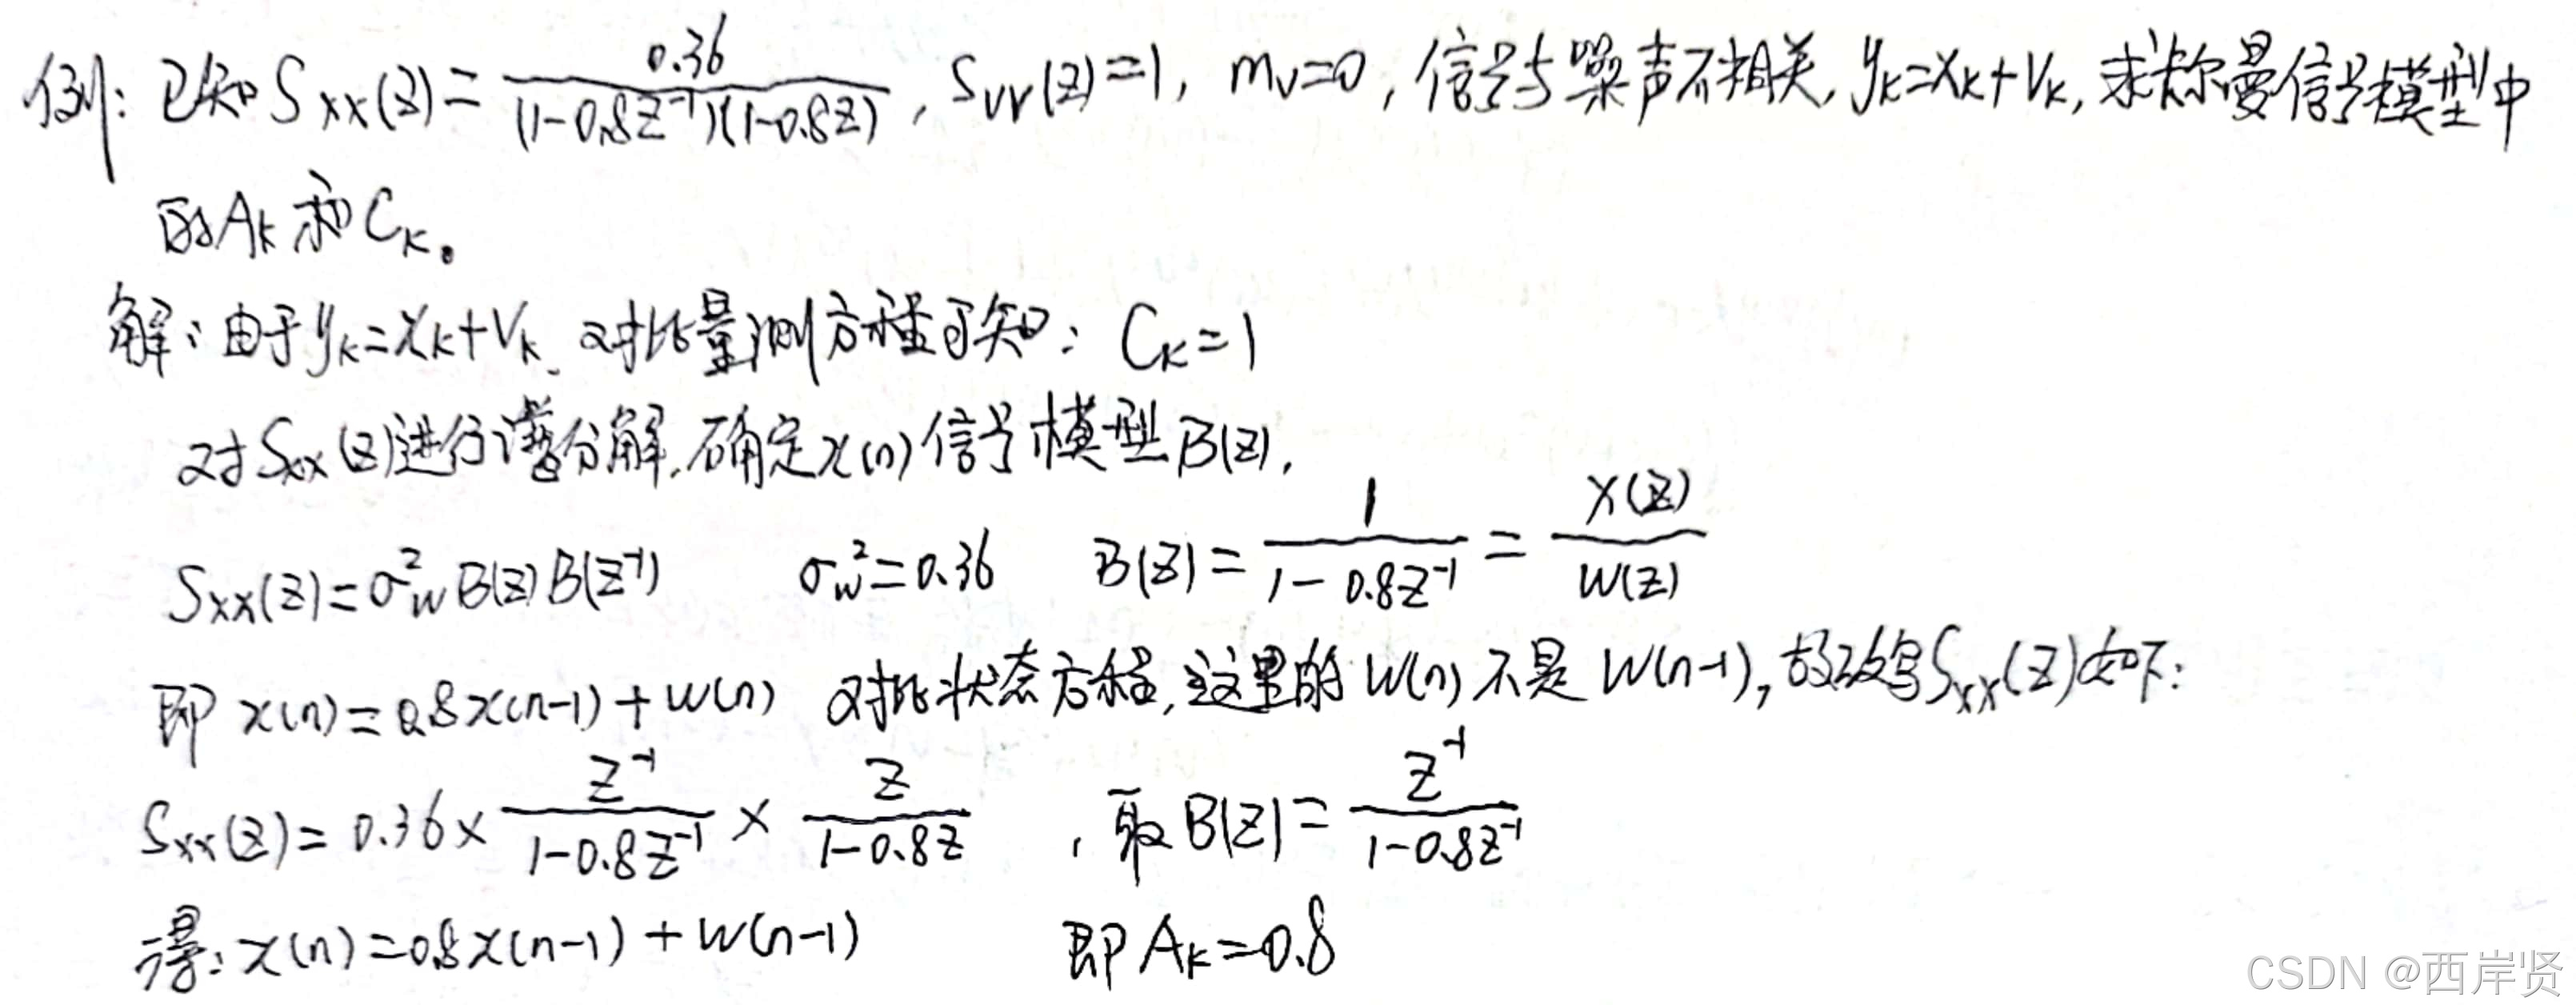 例: 已知 Sxx(z) = 0.36 / ((1-0.8z⁻¹)(1-0.8z)), Svv(z)=1, mv=0, 信号与噪声不相关, yk=xk+vk, 求卡尔曼信号模型中
的Ak和Ck。
解: 由于yk=xk+vk, 对比量测方程可知: Ck=1
对Sxx(z)进行谱分解, 确定x(n)信号模型B(z),
Sxx(z)=σ²w B(z)B(z⁻¹) σ²w=0.36 B(z) = 1 / (1-0.8z⁻¹) = X(z) / W(z)
即 x(n)=0.8x(n-1)+w(n) 对比状态方程, 这里的 w(n) 不是 w(n-1), 故改写Sxx(z)如下:
Sxx(z) = 0.36 × z⁻¹ / (1-0.8z⁻¹) × z / (1-0.8z) , 取 B(z) = z⁻¹ / (1-0.8z⁻¹)
得: x(n)=0.8x(n-1)+w(n-1) 即 Ak=0.8
CSDN @西岸贤